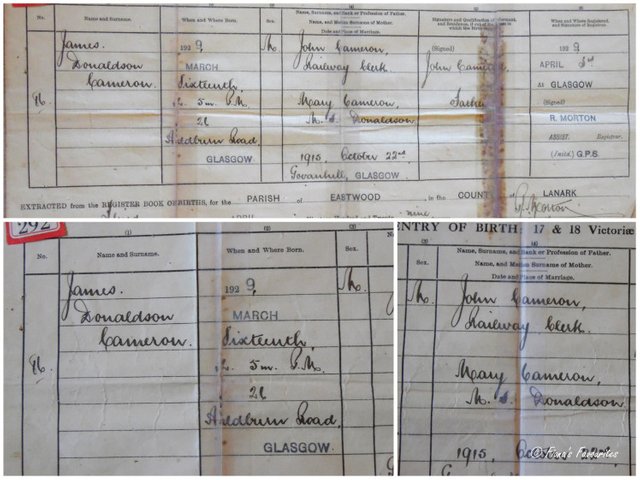 No.
Name and Surname.
When and Where Born.
Sex.
Name, Surname, and Rank or Profession of Father.
Name, and Maiden Surname of Mother.
Date and Place of Marriage.
Signature and Qualification of Informant,
and Residence, if out of the House in
which the Birth
When and Where Registered,
and Signature of Registrar.
James
Donaldson
Cameron
1929
MARCH
Sixteenth,
5m. P.M.
26
Road,
GLASGOW
M.
John Cameron,
Railway Clerk
Mary Cameron,
M.S. Donaldson
1915, October 22nd
Govanhill, GLASGOW
(Signed)
John Cameron
Father
1929
APRIL 3rd
At GLASGOW
(Signed)
R. MORTON
ASSIST. Registrar.
(Initd.) G.P.S.
EXTRACTED FROM THE REGISTER BOOK OF BIRTHS, for the PARISH of EASTWOOD, in the COUNTY of LANARK
APRIL nine
R. Morton
292
(1)
(2)
(3)
No.
Name and Surname.
When and Where Born.
Sex.
James
Donaldson
Cameron.
1929,
MARCH
Sixteenth,
5m. P.M.
26
Road,
GLASGOW.
M.
ENTRY OF BIRTH 17 & 18 Victoriæ
(3)
(4)
Sex.
Name, Surname, and Rank or Profession of Father.
Name, and Maiden Surname of Mother.
Date and Place of Marriage.
M.
John Cameron,
Railway Clerk.
Mary Cameron,
M.S. Donaldson
1915, October 22nd
© Fiona's Favourites